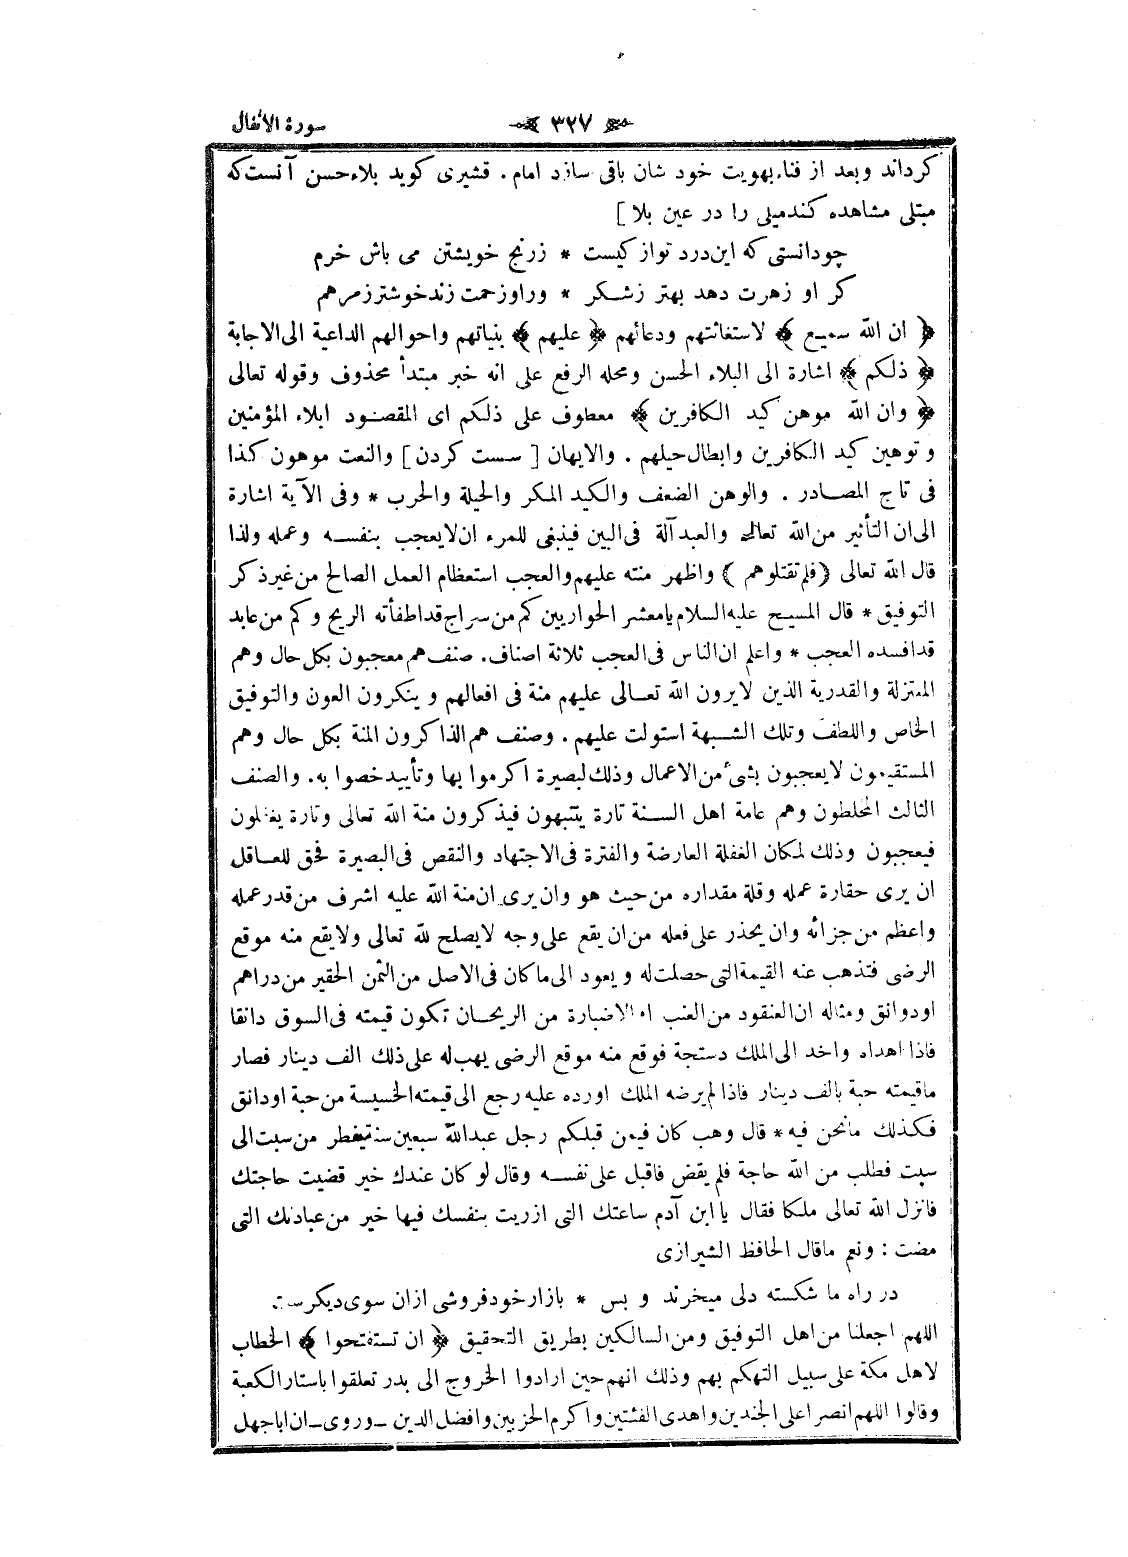 سورة الأنفال ٣٢٧
كرداند وبعد از فناء بهويت خود شان باقى سازد امام . قشيرى كويد بلاء حسن آنست كه
مبتلى مشاهده كند مبلى را در عين بلا ]
چو دانستى كه اين درد تو از كيست * ز رنج خويشتن مى باش خرم
كر او زهرت دهد بهتر ز شكر * ور او زحمت زند خوشتر ز مرهم
﴿ ان الله سميع ﴾ لاستغاثتهم ودعائهم ﴿ عليهم ﴾ بنياتهم واحوالهم الداعية الى الاجابة
﴿ ذلكم ﴾ اشارة الى البلاء الحسن ومحله الرفع على انه خبر مبتدأ محذوف وقوله تعالى
﴿ وان الله موهن كيد الكافرين ﴾ معطوف على ذلكم اى المقصود ابلاء المؤمنين
وتوهين كيد الكافرين وابطال حيلهم . والايهان [ سست كردن ] والنعت موهون كذا
فى تاج المصادر . والوهن الضعف والكيد المكر والحيلة والحرب * وفى الآية اشارة
الى ان التأثير من الله تعالى والعبد آلة فى البين فينبغى للمرء ان لا يعجب بنفسه وعمله ولذا
قال الله تعالى ( فلم تقتلوهم ) واظهر منته عليهم والعجب استعظام العمل الصالح من غير ذكر
التوفيق * قال المسيح عليه السلام يا معشر الحواريين كم من سراج قد اطفأته الريح وكم من عابد
قد افسده العجب * واعلم ان الناس فى العجب ثلاثة اصناف . صنف هم معجبون بكل حال وهم
المعتزلة والقدرية الذين لا يرون الله تعالى عليهم منة فى افعالهم وينكرون العون والتوفيق
الخاص واللطف وتلك الشبهة استولت عليهم . وصنف هم الذاكرون المنة بكل حال وهم
المستقيمون لا يعجبون بشئ من الاعمال وذلك لبصيرة اكرموا بها وتأييد خصوا به . والصنف
الثالث المخلطون وهم عامة اهل السنة تارة يتنبهون فيذكرون منة الله تعالى وتارة يغفلون
فيعجبون وذلك لمكان الغفلة العارضة والفترة فى الاجتهاد والنقص فى البصيرة فحق للعاقل
ان يرى حقارة عمله وقلة مقداره من حيث هو وان يرى ان منة الله عليه اشرف من قدر عمله
واعظم من جزائه وان يحذر على فعله من ان يقع على وجه لا يصلح لله تعالى ولا يقع منه موقع
الرضى فتذهب عنه القيمة التى حصلت له ويعود الى ما كان فى الاصل من الثمن الحقير من دراهم
او دوانق ومثاله ان العنقود من العنب او الاضبارة من الريحان تكون قيمته فى السوق دانقا
فاذا اهداه واحد الى الملك دستجة فوقع منه موقع الرضى يهب له على ذلك الف دينار فصار
ما قيمته حبة بالف دينار فاذا لم يرضه الملك او رده عليه رجع الى قيمته الخسيسة من حبة او دانق
فكذلك ما نحن فيه * قال وهب كان فيمن قبلكم رجل عبد الله سبعين سنة يفطر من سبت الى
سبت فطلب من الله حاجة فلم يقض فاقبل على نفسه وقال لو كان عندك خير قضيت حاجتك
فانزل الله تعالى ملكا فقال يا ابن آدم ساعتك التى ازريت بنفسك فيها خير من عبادتك التى
مضت : ونعم ما قال الحافظ الشيرازى
در راه ما شكسته دلى ميخرند و بس * بازار خود فروشى ازان سوى ديكرست
اللهم اجعلنا من اهل التوفيق ومن السالكين بطريق التحقيق ﴿ ان تستفتحوا ﴾ الخطاب
لاهل مكة على سبيل التهكم بهم وذلك انهم حين ارادوا الخروج الى بدر تعلقوا باستار الكعبة
وقالوا اللهم انصر اعلى الجندين واهدى الفئتين واكرم الحزبين وافضل الدين ـ وروى ـ ان اباجهل